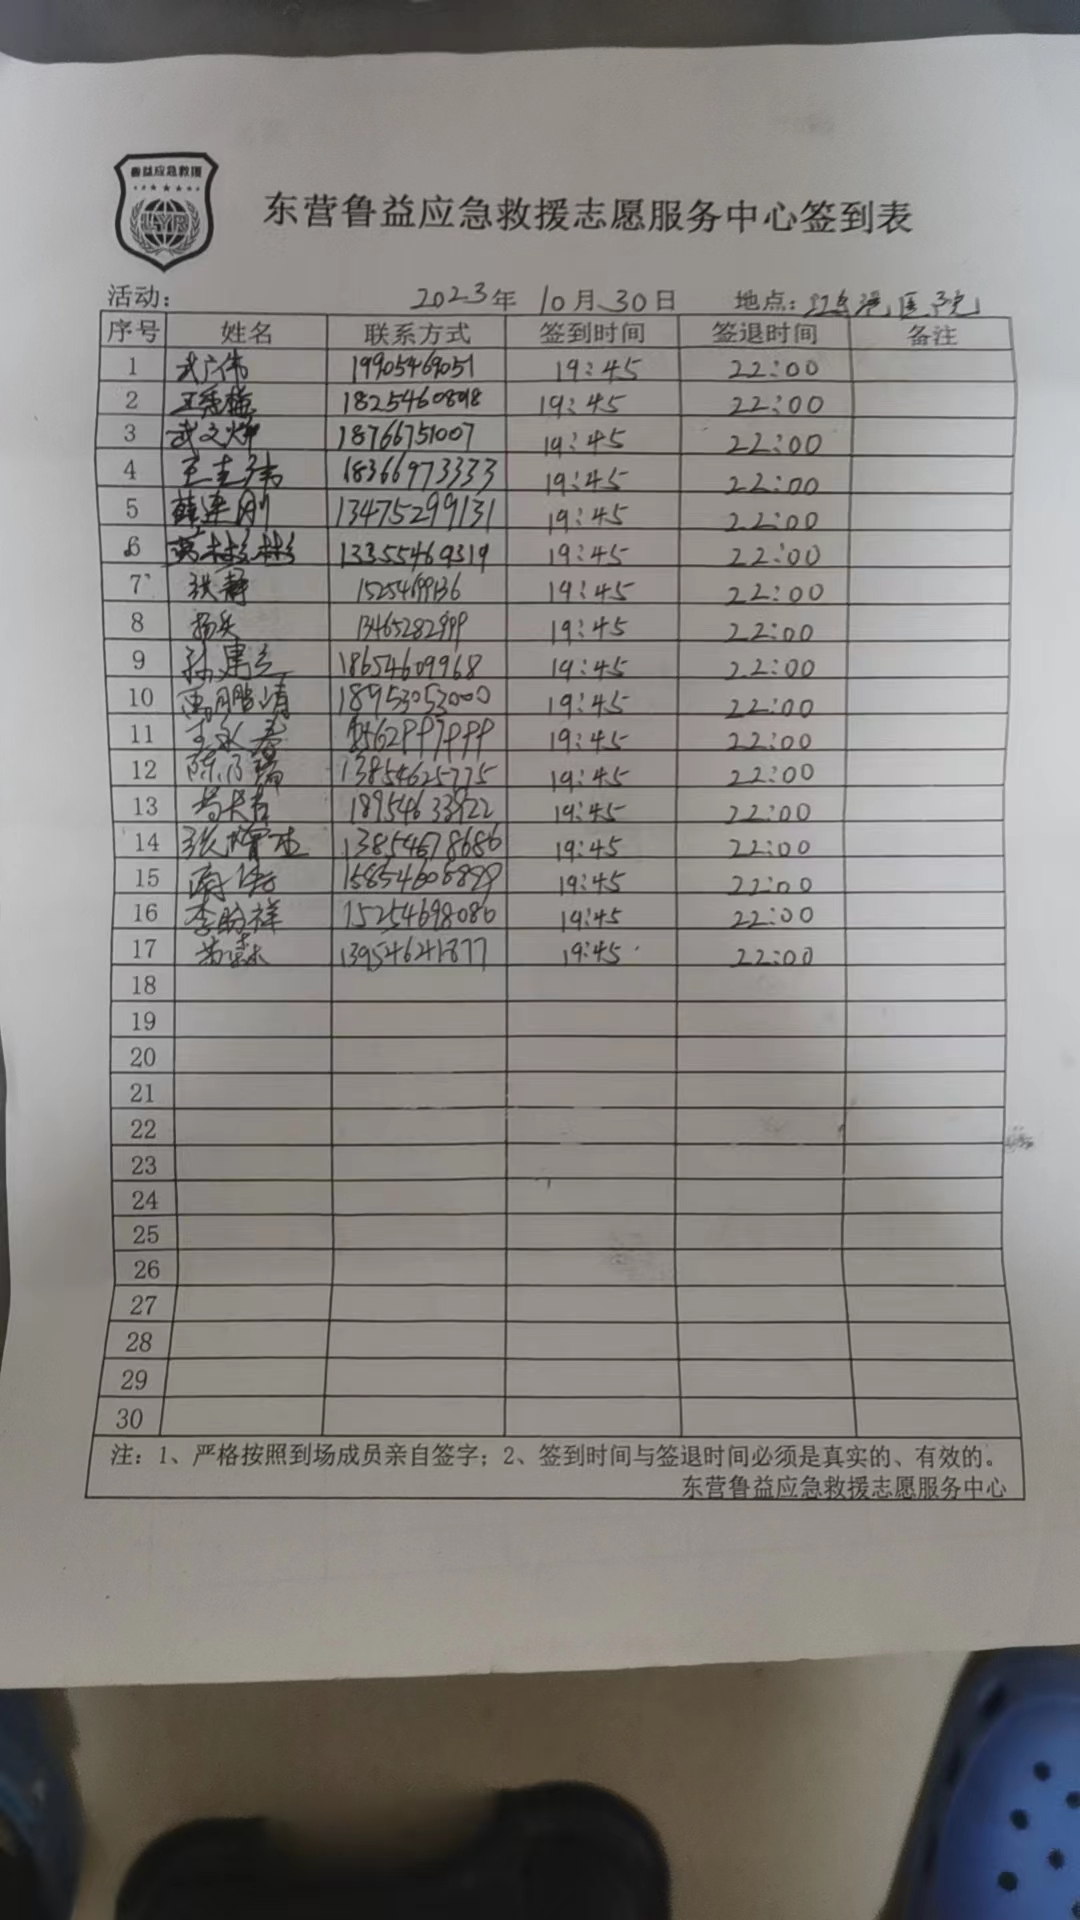 鲁益应急救援
LYR
东营鲁益应急救援志愿服务中心签到表
活动： 2023年 10月30日 地点: 医院
序号 姓名 联系方式 签到时间 签退时间 备注
1 武广伟 19905469051 19:45 22:00
2 18254608898 19:45 22:00
3 武文烨 18766751007 19:45 22:00
4 王志伟 18366973333 19:45 22:00
5 薛连刚 13475299131 19:45 22:00
6 13355469319 19:45 22:00
7 张静 19:45 22:00
8 13465282999 19:45 22:00
9 孙建 18654609968 19:45 22:00
10 18953053000 19:45 22:00
11 王永春 19:45 22:00
12 陈乃瑞 13854625775 19:45 22:00
13 18954633922 19:45 22:00
14 13854678686 19:45 22:00
15 15854608899 19:45 22:00
16 李盼祥 15254698086 19:45 22:00
17 13954641877 19:45 22:00
18
19
20
21
22
23
24
25
26
27
28
29
30
注：1、严格按照到场成员亲自签字；2、签到时间与签退时间必须是真实的、有效的。
东营鲁益应急救援志愿服务中心